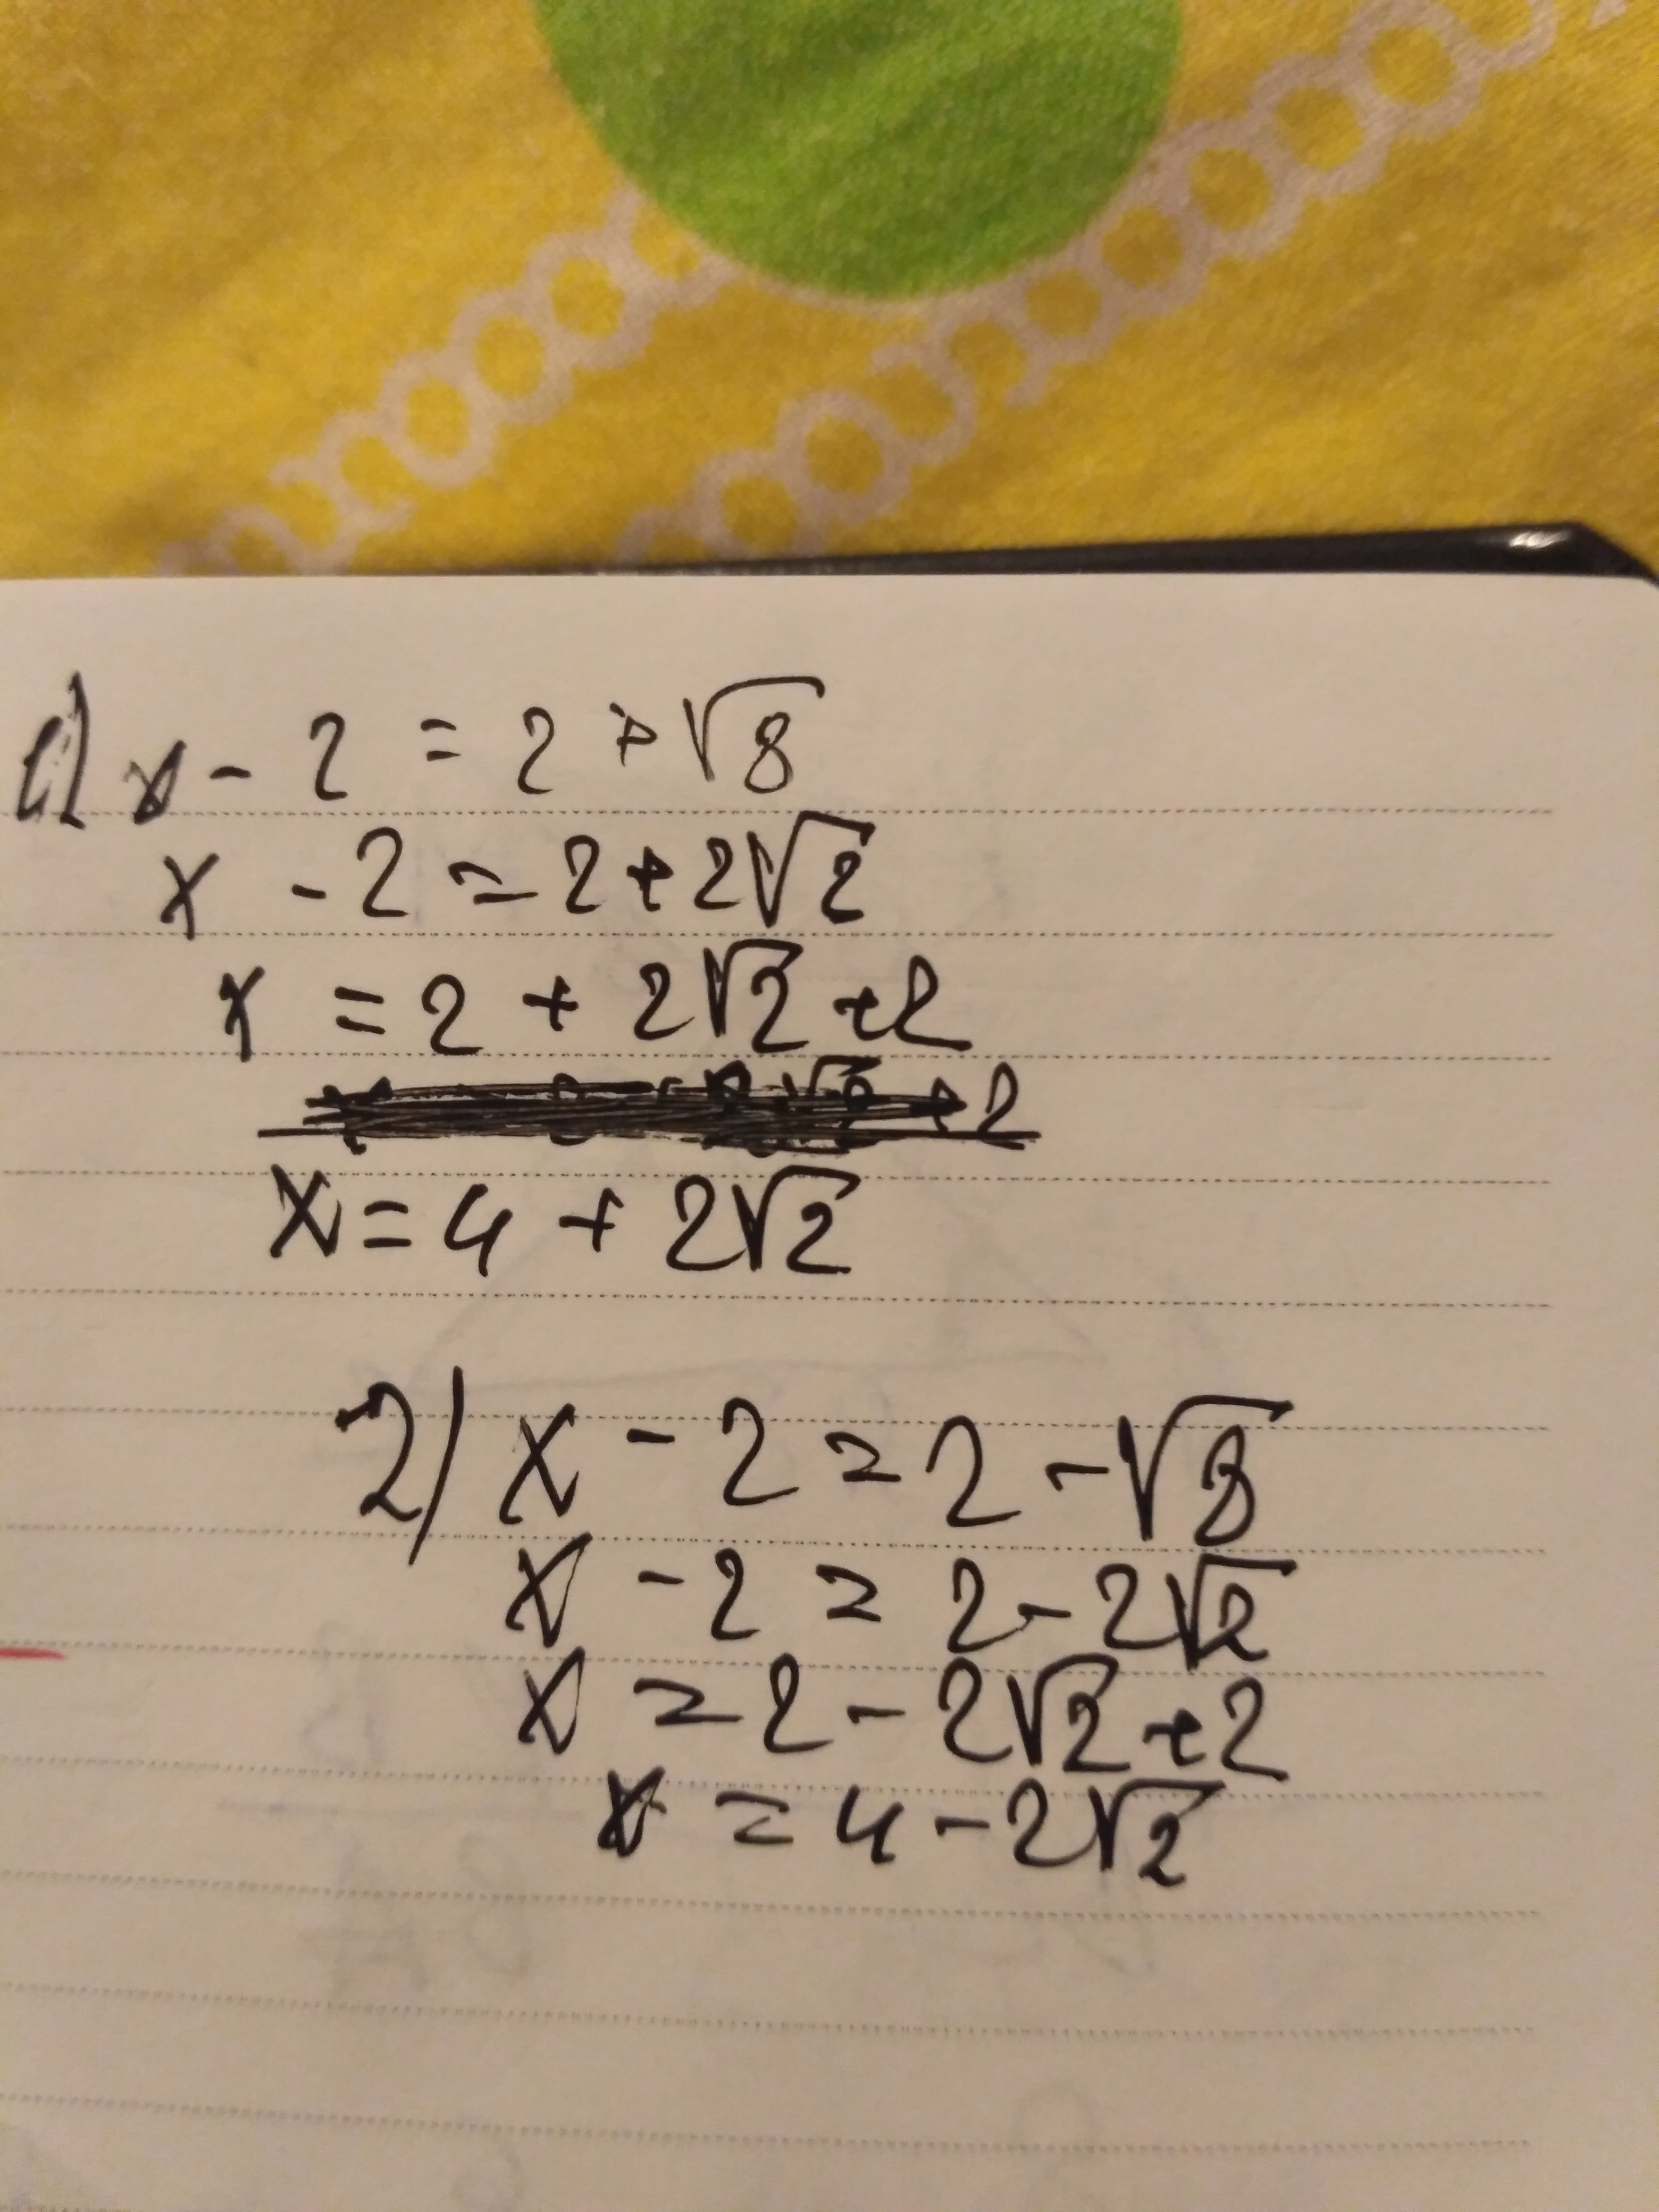 1) x - 2 = 2 + √8
x - 2 = 2 + 2√2
x = 2 + 2√2 + 2
+ 2
x = 4 + 2√2
2) x - 2 = 2 - √8
x - 2 = 2 - 2√2
x = 2 - 2√2 + 2
x = 4 - 2√2